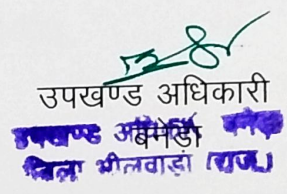 उपखण्ड अधिकारी
बनेड़ा
उपखण्ड अधिकारी बनेड़ा
जिला भीलवाड़ा (राज.)